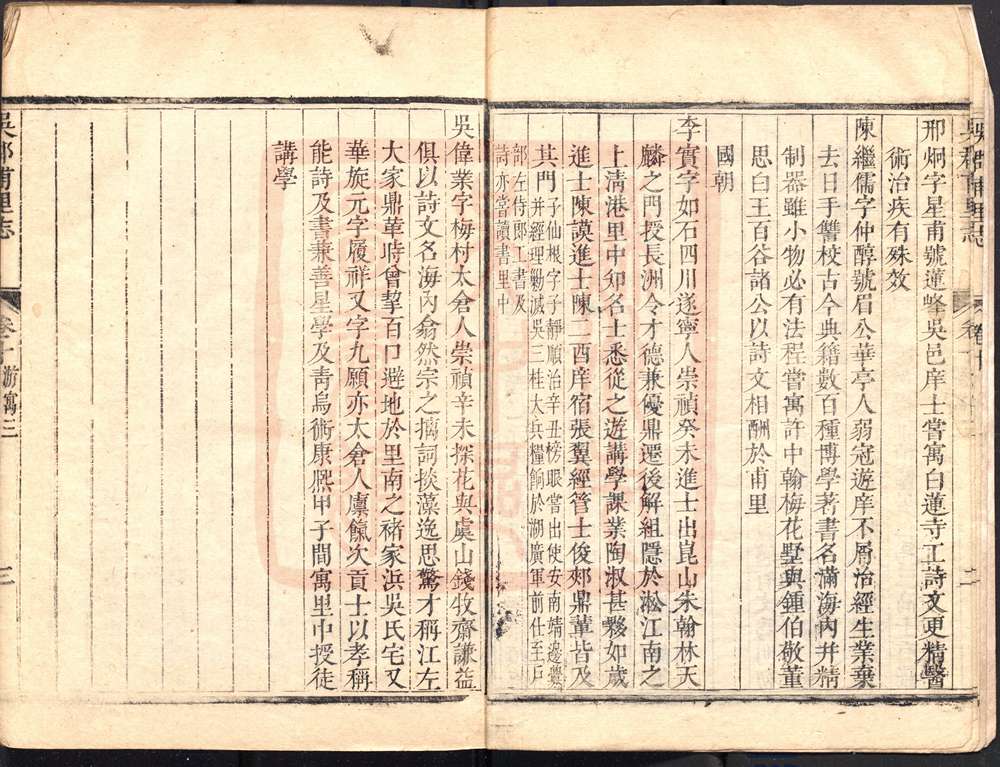 吳郡甫里志
卷十
二
邢炯字星甫號蓮峰吳邑庠士嘗寓白蓮寺工詩文更精醫
術治疾有殊效
陳繼儒字仲醇號眉公華亭人弱冠遊庠不屑治經生業棄
去日手讐校古今典籍數百種博學著書名滿海內并精
制器雖小物必有法程嘗寓許中翰梅花墅與鍾伯敬董
思白王百谷諸公以詩文相酬於甫里
國朝
李實字如石四川遂寧人崇禎癸未進士出崑山朱翰林天
麟之門授長洲令才德兼優鼎遷後解組隱於淞江南之
上清港里中知名士悉從之遊講學課業陶淑甚夥如歲
進士陳謨進士陳二酉庠宿張翼經管士俊郟鼎葷皆及
其門子仙根字子靜順治辛丑榜眼嘗出使安南靖邊釁
并經理勦滅吳三桂大兵糧餉於湖廣軍前仕至戶
部左侍郎工書及
詩亦嘗讀書里中
吳偉業字梅村太倉人崇禎辛未探花與虞山錢牧齋謙益
俱以詩文名海內翕然宗之摛詞掞藻逸思驚才稱江左
大家鼎革時曾挈百口避地於里南之褚家浜吳氏宅又
華旋元字履祥又字九願亦太倉人廩餼次貢士以孝稱
能詩及書兼善星學及靑烏術康熙甲子間寓里中授徒
講學
吳郡甫里志
卷十游寓三
三